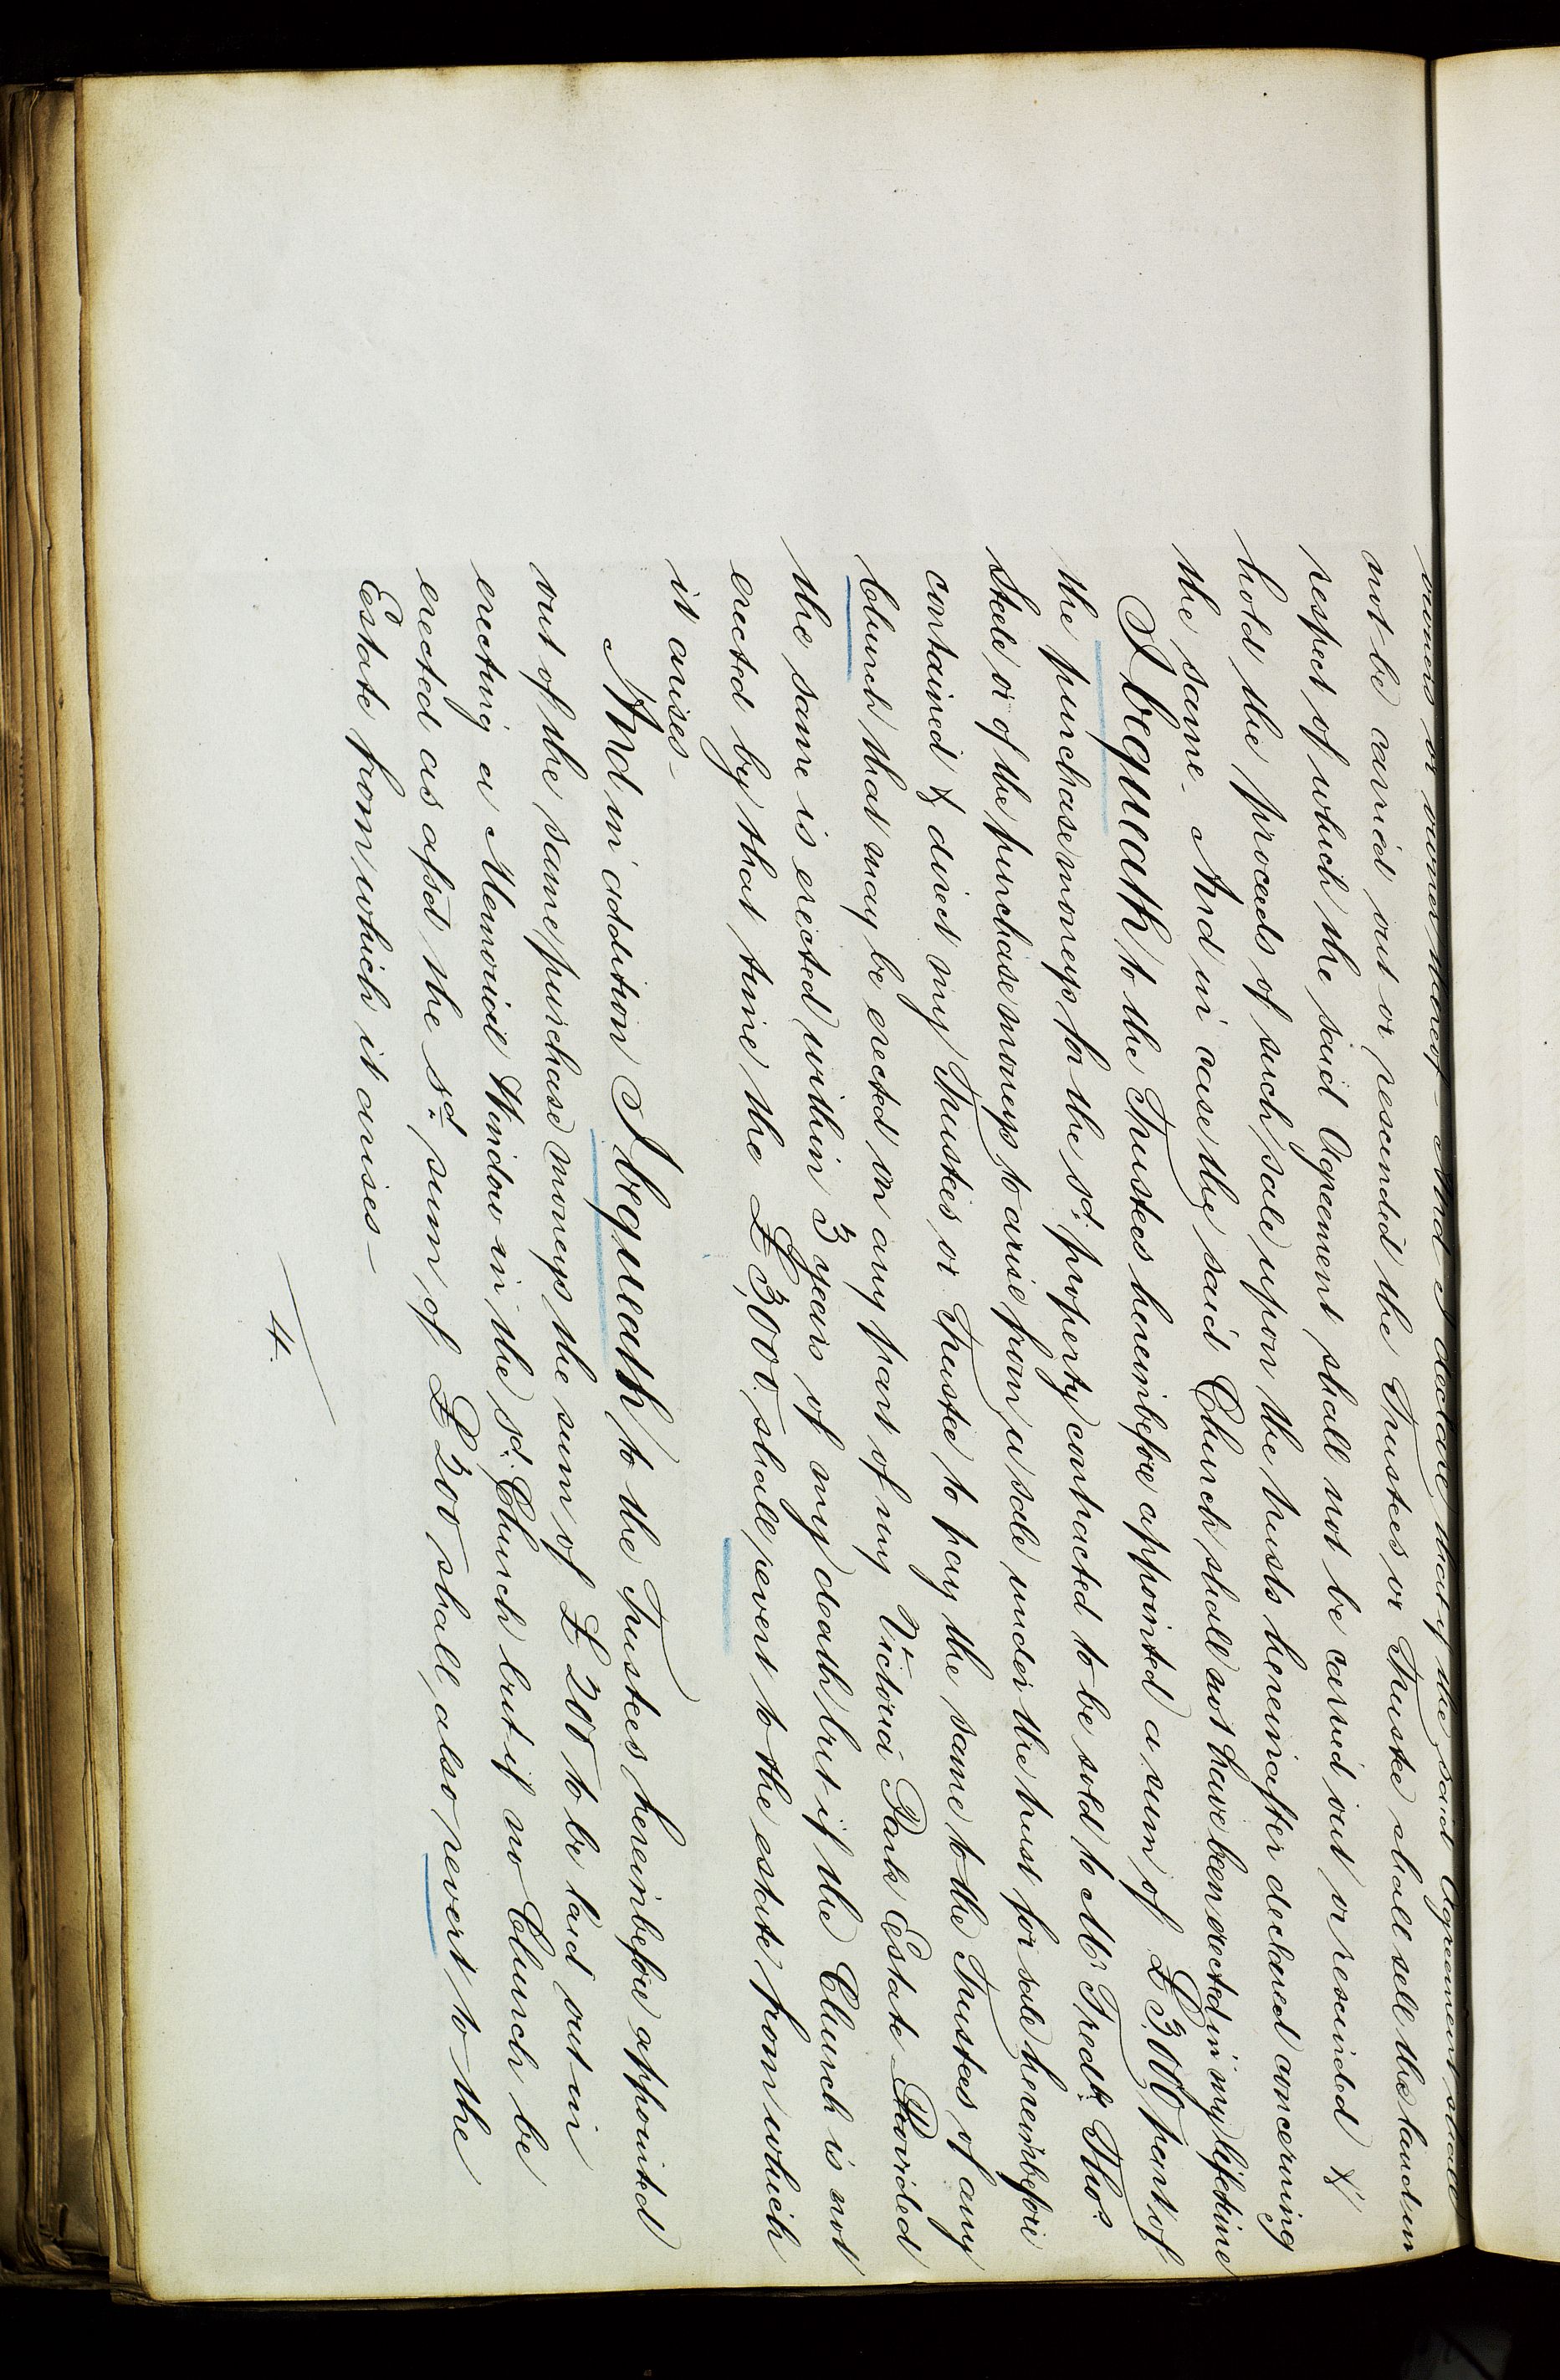 owners or owner thereof – And I declare that if the said Agreement shall
not be carried out or rescinded the Trustees or Trustee shall sell the land in
respect of which the said Agreement shall not be carried out or rescinded &
hold the proceeds of such sale upon the trusts hereinafter declared concerning
the same – And in case the said Church shall not have been erected in my lifetime
I bequeath to the Trustees hereinbefore appointed a sum of £3,000 part of
the purchase moneys for the sd. property contracted to be sold to Mr. Fredk. Thos.
Steele or of the purchase moneys to arise from a sale under the trust for sale hereinbefore
contained & direct my Trustees or Trustee to pay the same to the Trustees of any
Church that may be erected on any part of my Victoria Park Estate Provided
the same is erected within 3 years of my death but if the Church is not
erected by that time the £3,000. shall revert to the estate from which
it arises –
And in addition I bequeath to the Trustees hereinbefore appointed
out of the same purchase moneys the sum of £200 to be laid out in
erecting a Memorial Window in the sd. Church but if no Church be
erected as afsd the sd. sum of £200 shall also revert to the
Estate from which it arises –
4.